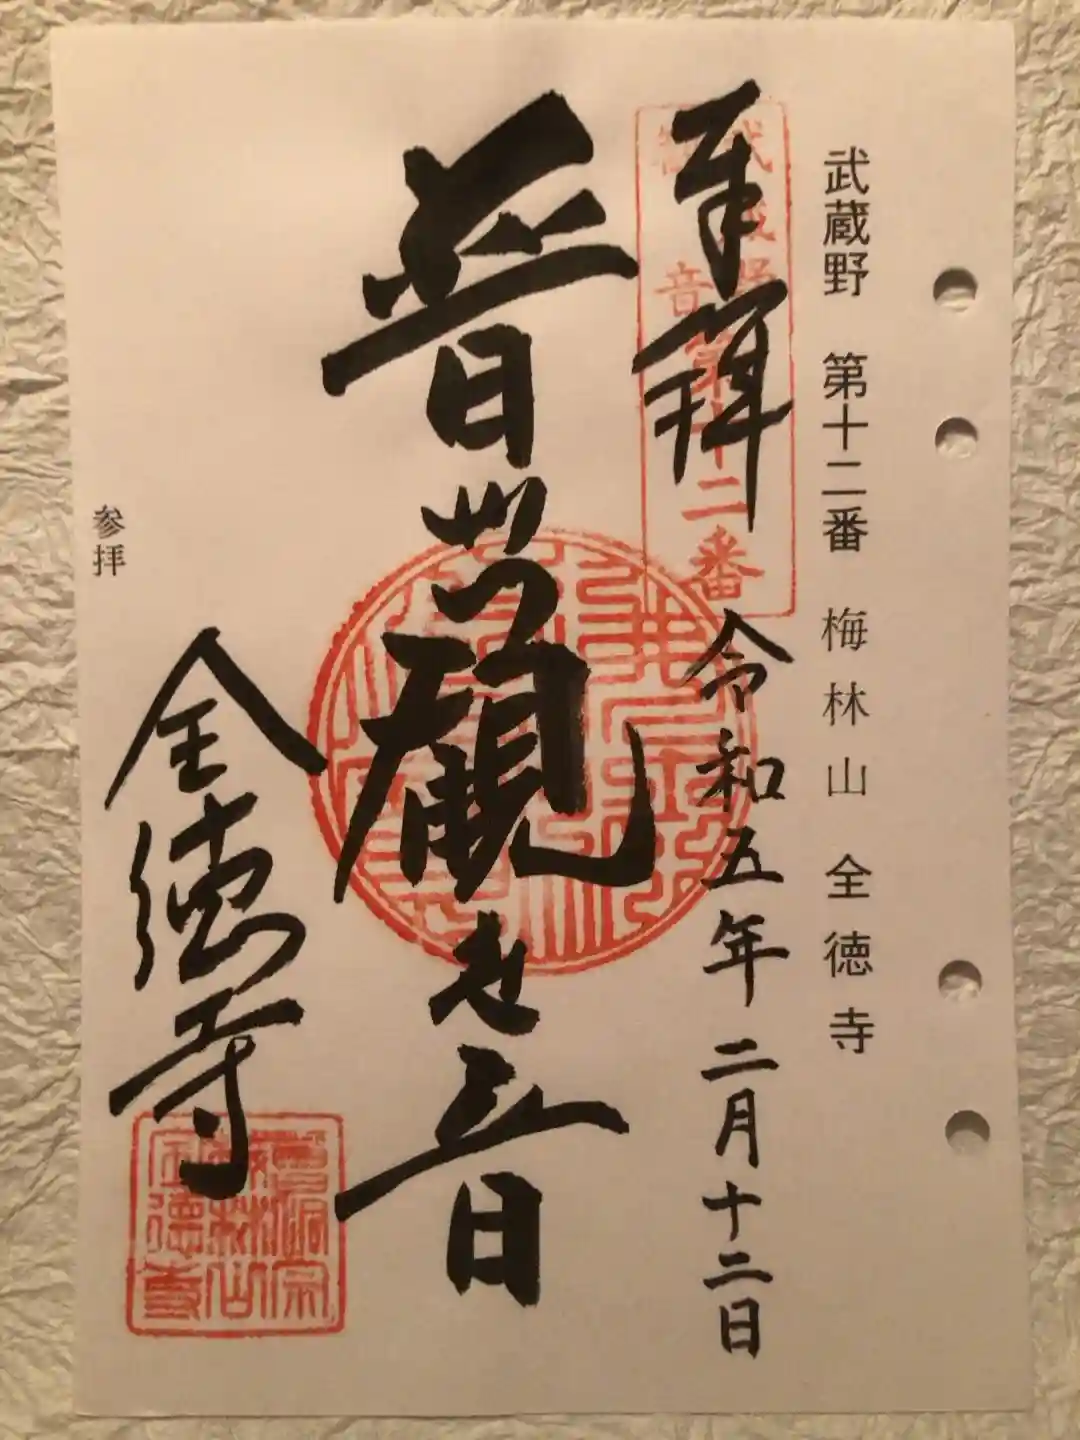 武蔵野 第十二番 梅林山 全徳寺
武蔵野
観音第十二番
奉拝 令和五年二月十二日
普世観世音
参拝
全徳寺
曹洞宗
梅林山
全徳寺